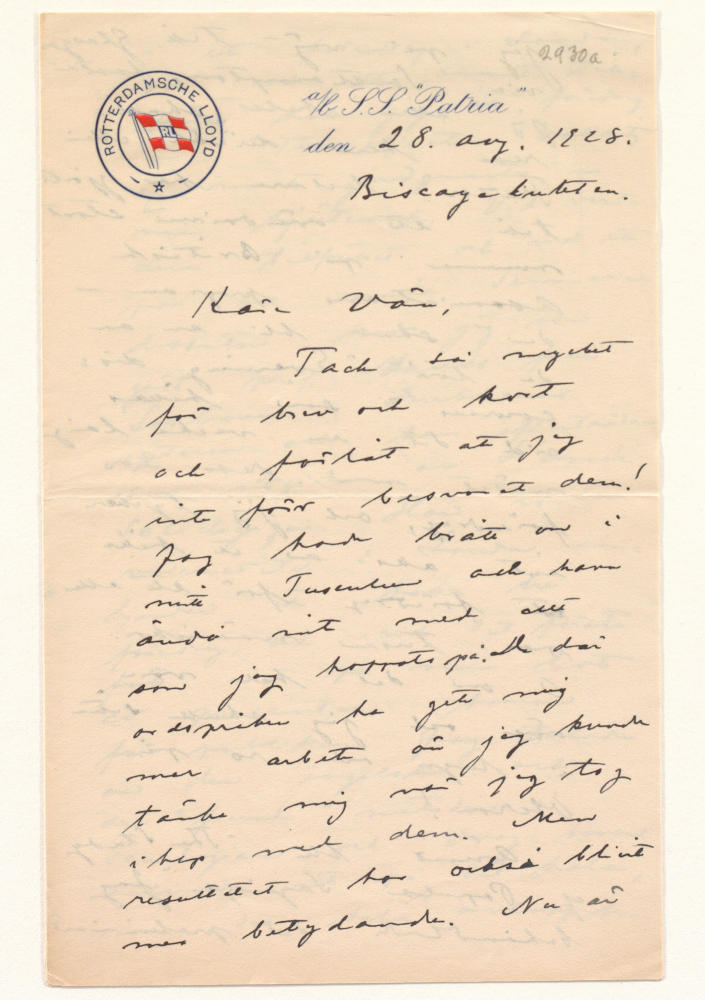 2930a
ROTTERDAMSCHE LLOYD
RL
a/b S.S. "Patria"
den 28. aug. 1928.
Biscayabukten.
Kära Vän,
Tack så mycket
för brev och kort
och förlåt att jag
inte förr besvarat dem!
Jag hade bråttom i
mitt Tusculum och hann
ändå inte med allt
som jag hoppats på. De där
ordspråken ha gett mig
mer arbete än jag kunde
tänka mig när jag tog
ihop med dem. Men
resultatet har också blivit
mer betydande. Nu är